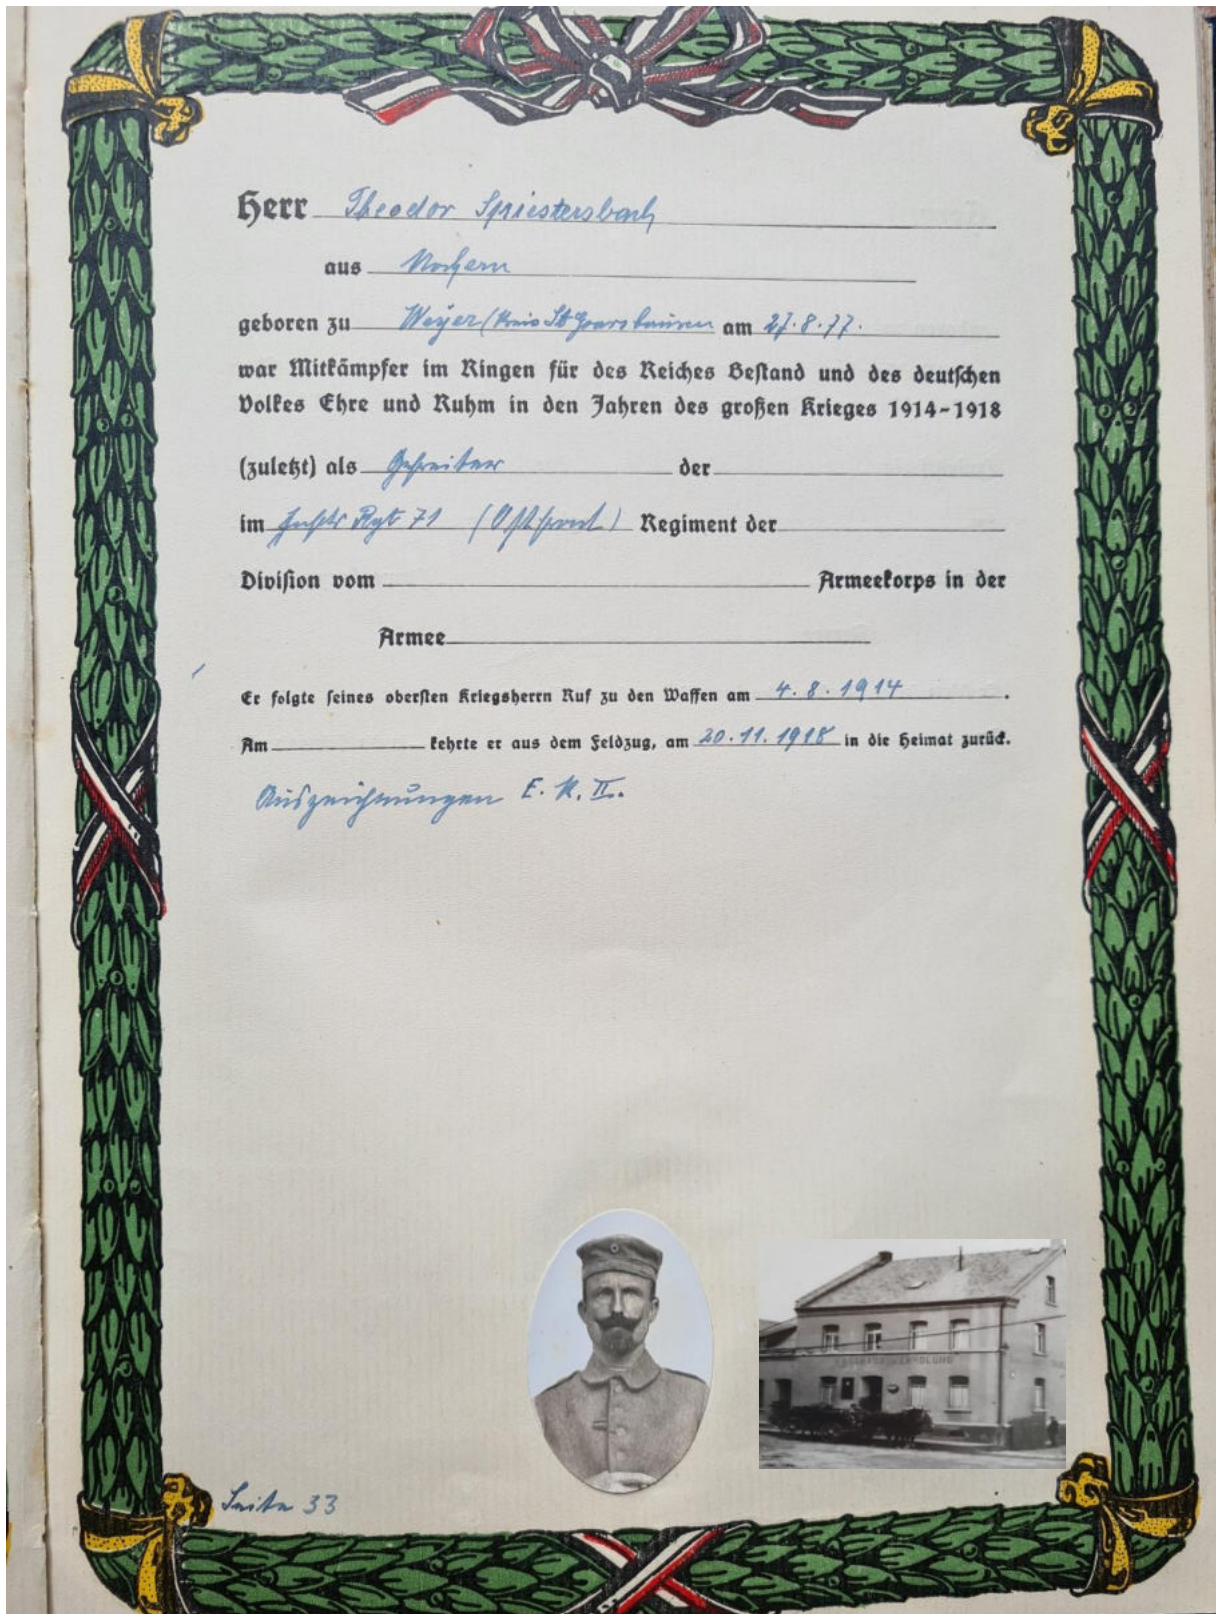 Herr Theodor Spriestersbach
aus Nochern
geboren zu Weyer (Kreis St Goarshausen am 27.8.77.
war Mitkämpfer im Ringen für des Reiches Bestand und des deutschen
Volkes Ehre und Ruhm in den Jahren des großen Krieges 1914-1918
(zuletzt) als Gefreiter der
im Rgt 71 (Ostfront) Regiment der
Division vom Armeekorps in der
Armee
Er folgte seines obersten Kriegsherrn Ruf zu den Waffen am 4.8.1914.
Am kehrte er aus dem Feldzug, am 20.11.1918 in die Heimat zurück.
Auszeichnungen E.K.II.
Seite 33